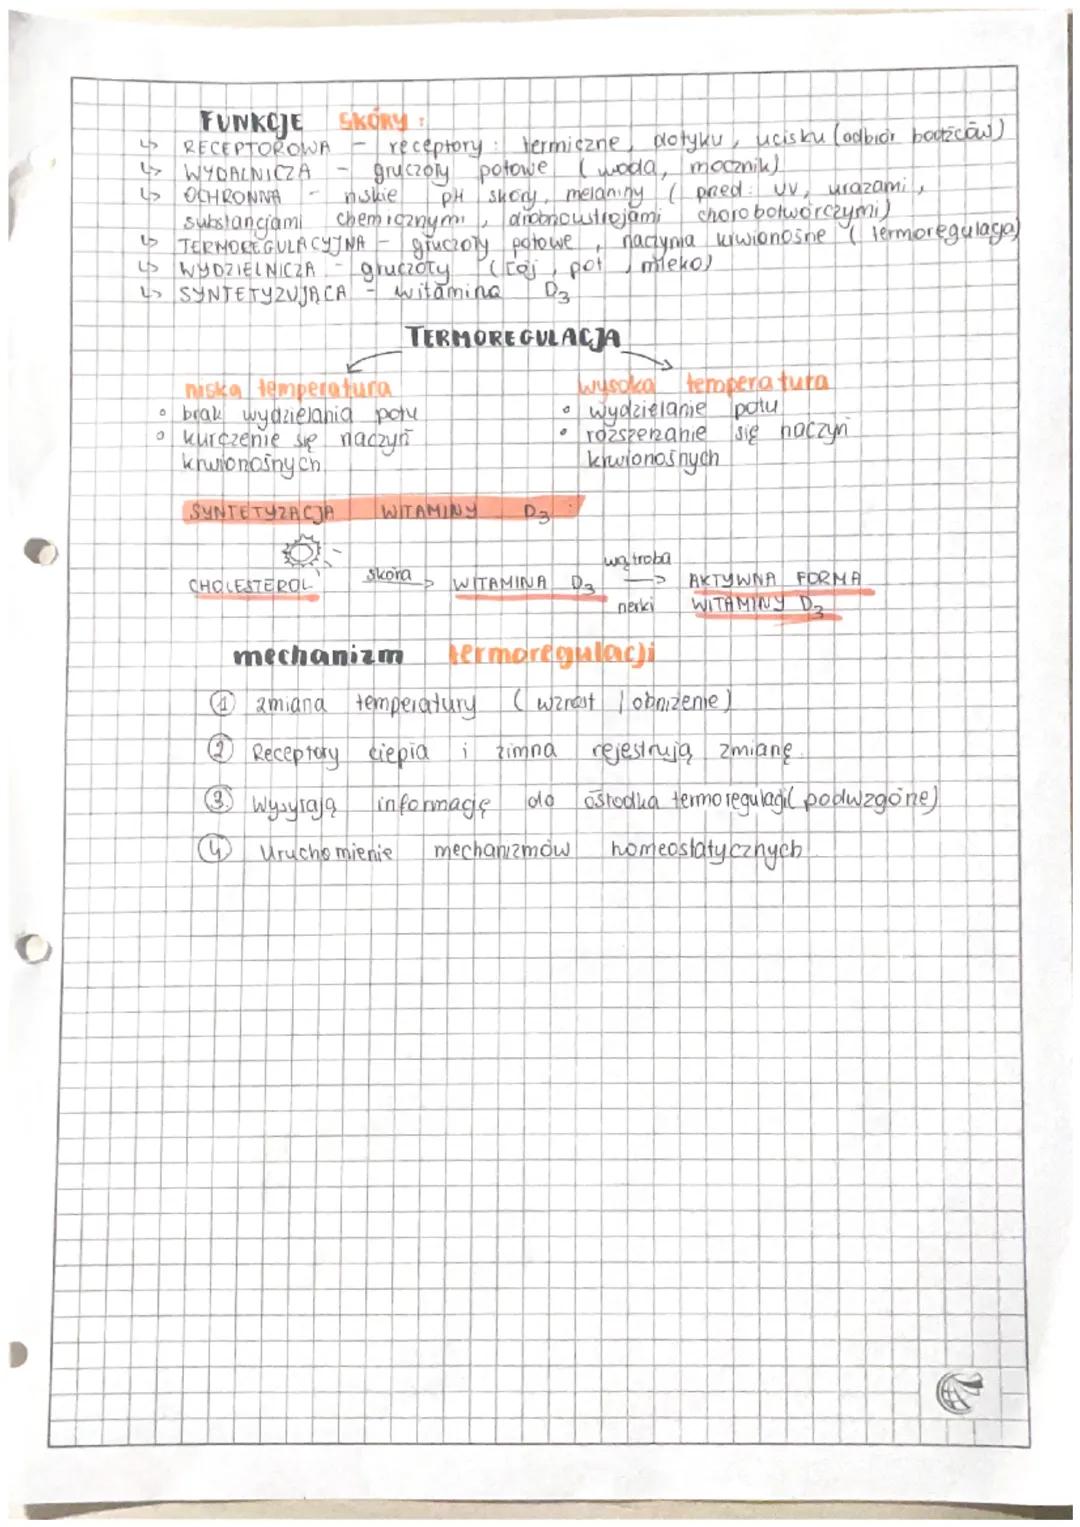 FUNKCJE SKÓRY:
↳ RECEPTOROWA - receptory: termiczne, dotyku, ucisku (odbiór bodźców)
↳ WYDALNICZA - gruczoły potowe (woda, mocznik)
↳ OCHRONNA - niskie pH skóry, melaniny (przed: UV, urazami,
substancjami chemicznymi, drobnoustrojami chorobotwórczymi)
↳ TERMOREGULACYJNA - gruczoły potowe, naczynia krwionośne (termoregulacja)
↳ WYDZIELNICZA - gruczoły (łój, pot, mleko)
↳ SYNTETYZUJĄCA - witamina D3
TERMOREGULACJA
niska temperatura
• brak wydzielania potu
• kurczenie się naczyń
krwionośnych
wysoka temperatura
• wydzielanie potu
• rozszerzanie się naczyń
krwionośnych
SYNTETYZACJA WITAMINY D3:
CHOLESTEROL skóra → WITAMINA D3 wątroba → nerki AKTYWNA FORMA
WITAMINY D3
mechanizm termoregulacji
① zmiana temperatury (wzrost / obniżenie)
② Receptory ciepła i zimna rejestrują zmianę.
③ Wysyłają informację do ośrodka termoregulacji (podwzgórze)
④ Uruchomienie mechanizmów homeostatycznych